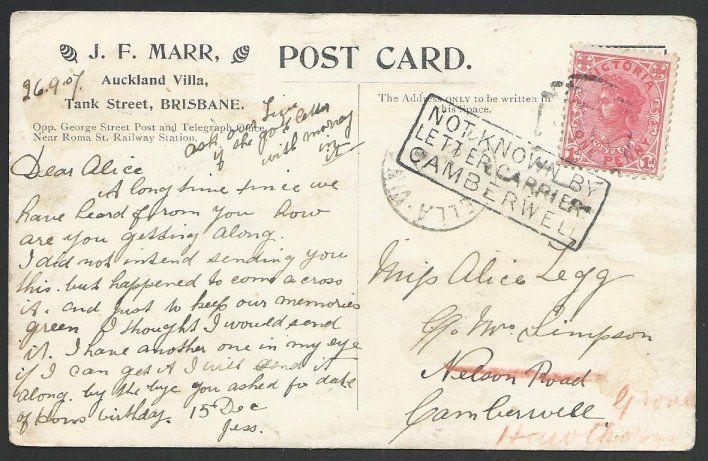 J. F. MARR,
Auckland Villa,
Tank Street, BRISBANE.
Opp. George Street Post and Telegraph Office.
Near Roma St. Railway Station.
26.9.07
POST CARD.
The Address ONLY to be written in
this Space.
VICTORIA
POSTAGE
ONE PENNY
1d 1d
NOT KNOWN BY
LETTER CARRIER
CAMBERWELL
ask your
if she got letter
with money
in it
Dear Alice
A long time since we
have heard from you how
are you getting along.
I did not intend sending you
this. but happened to come across
it. and just to keep our memories
green I thought I would send
it. I have another one in my eye
if I can get it I will send it
along. by the bye you asked for date
of birthday. 15 Dec
Jess.
Miss Alice Legg
C/o Mrs Simpson
Nelson Road
Camberwell
Grove
Hawthorne